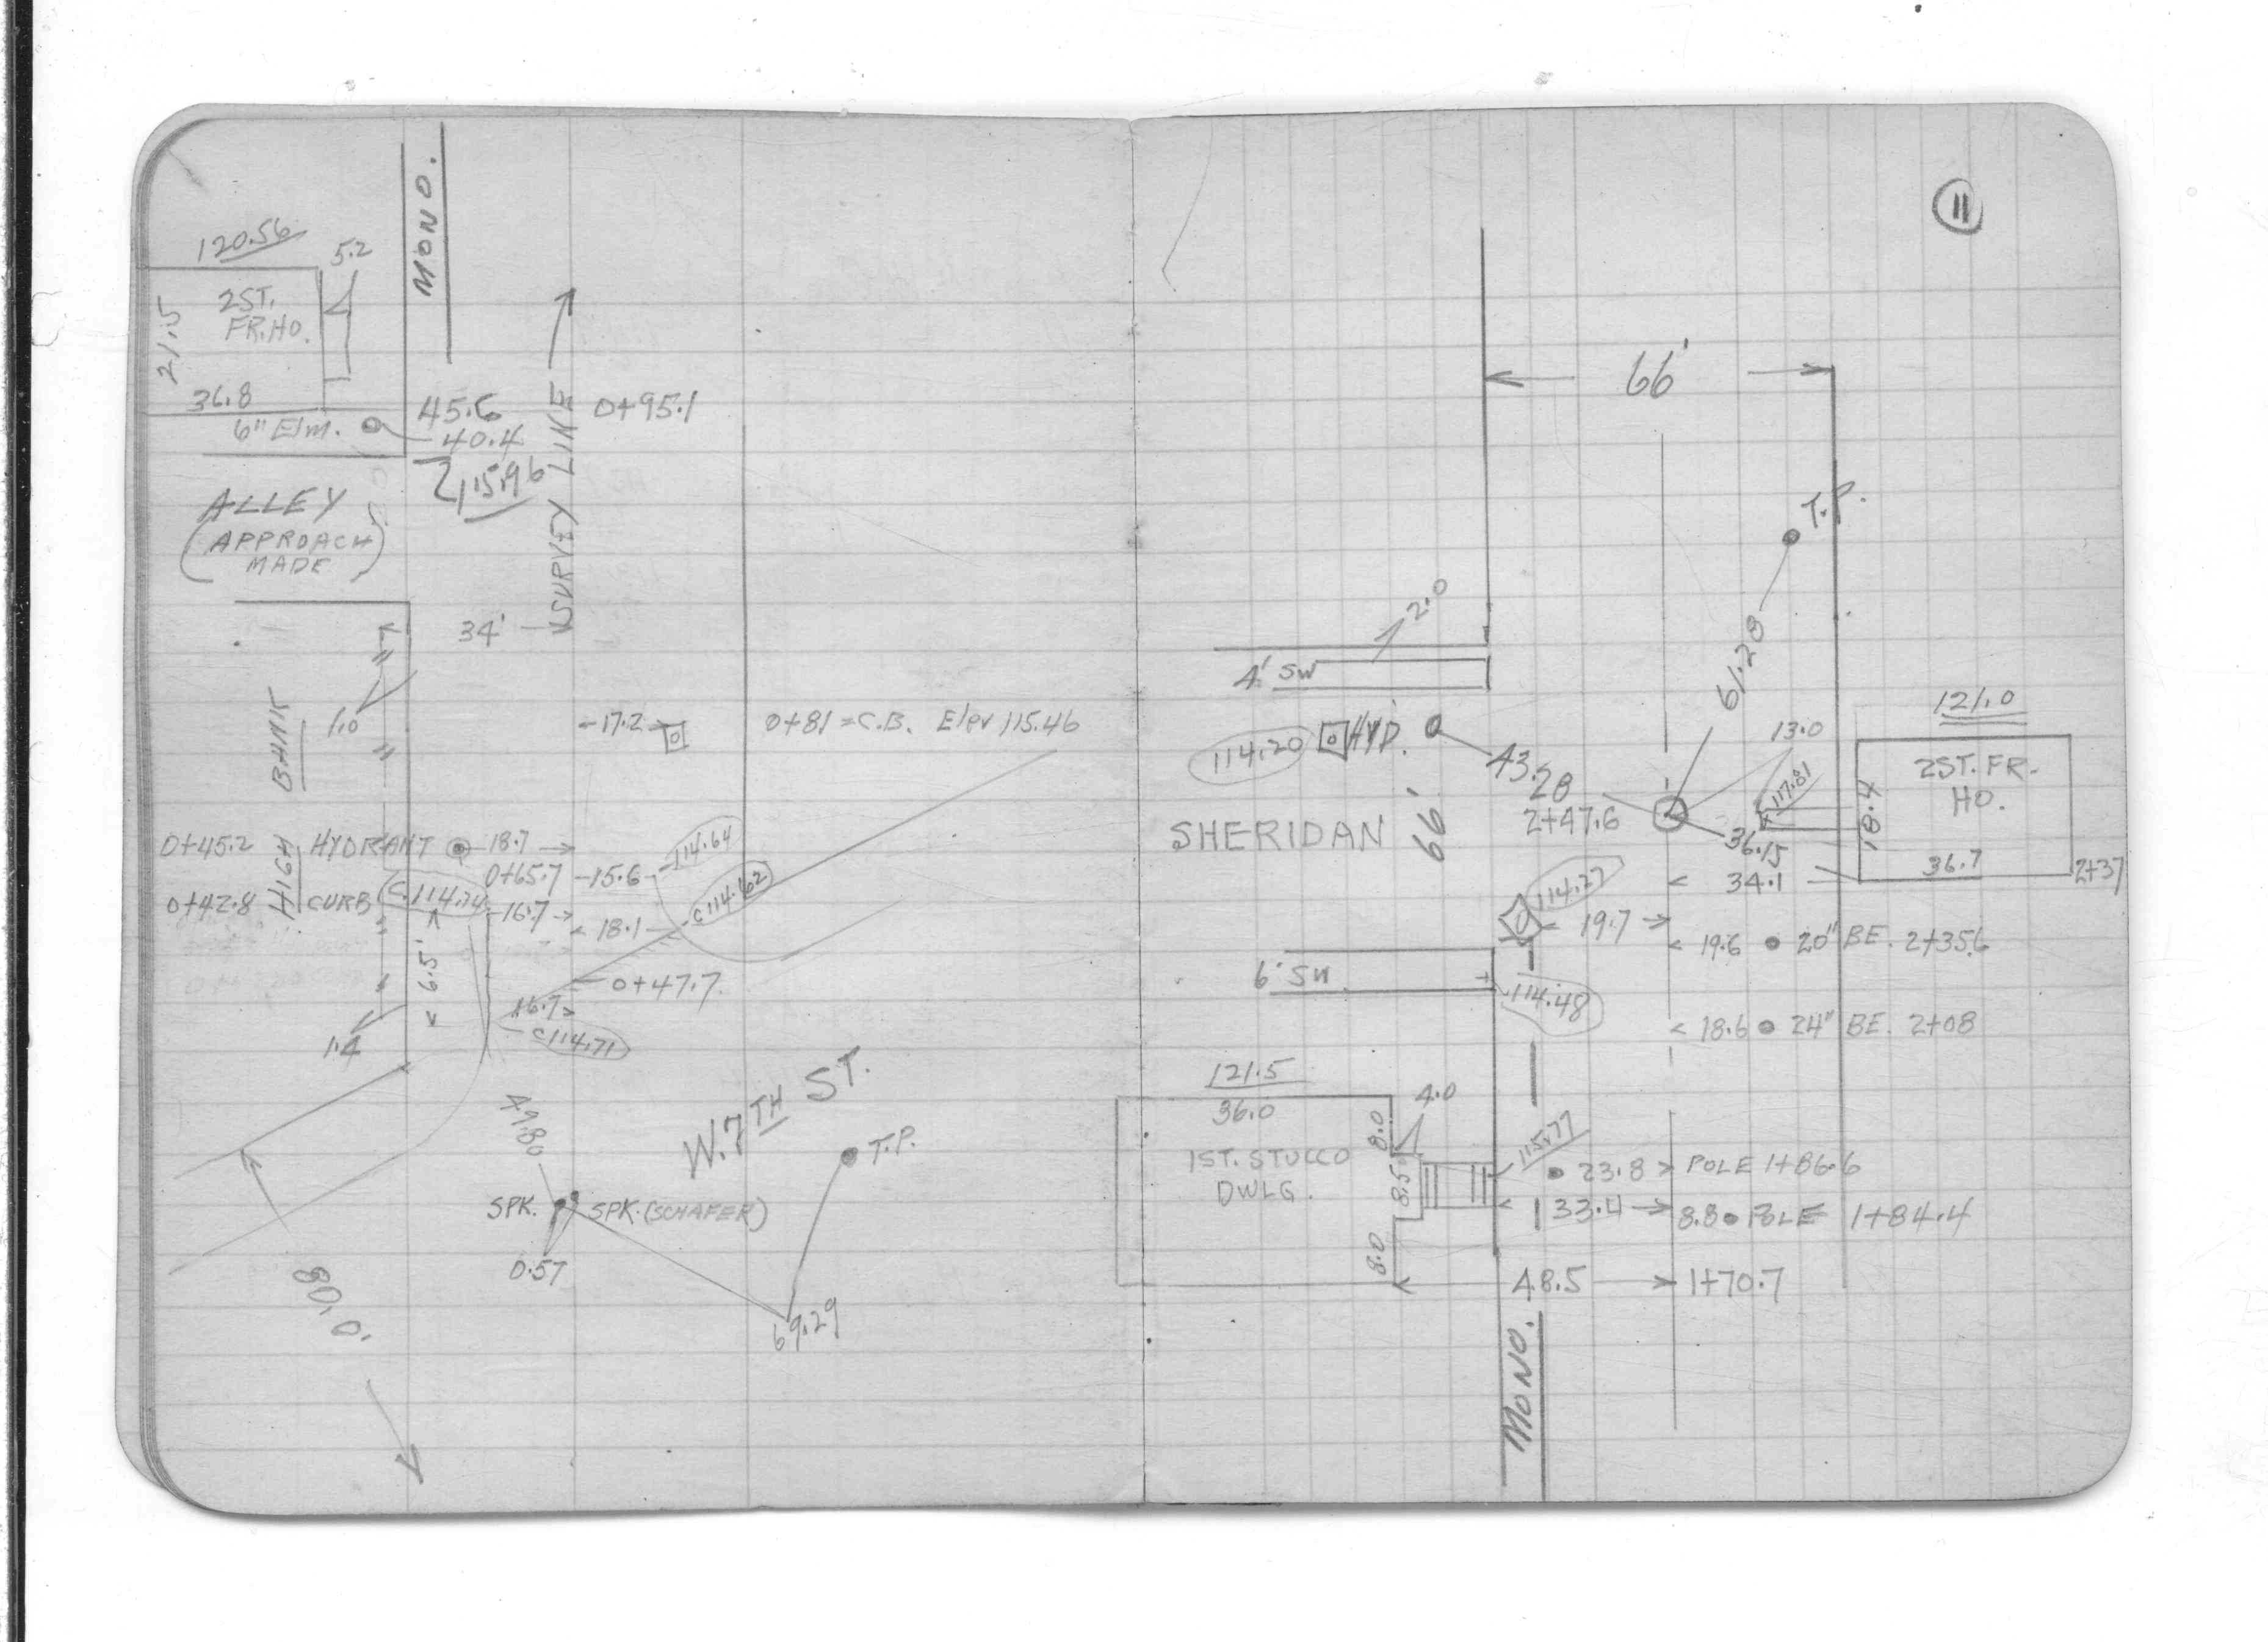 MONO.
120.56
5.2
2ST.
FR.HO.
21.5
36.8
6" Elm.
45.6
40.4
115.96
0+95.1
SURVEY LINE
ALLEY
(APPROACH
MADE)
34'
HIGH BANK
1.0
-17.2
0+81 = C.B. Elev 115.46
0+45.2 HYDRANT 18.7
0+65.7 -15.6- 114.64
0+42.8 CURB C.114.74 -16.7
18.1 C114.62
6.5'
0+47.7
16.7
C114.71
1.4
W.7TH ST.
49.80
T.P.
SPK. SPK.(SCHAFER)
0.57
69.29
80.0'
11
66'
T.P.
2.0
61.28
4' SW
121.0
114.20 HYD.
43.28
13.0
2ST. FR.
HO.
117.81
18.4
SHERIDAN 66'
2+47.6
36.15
34.1
36.7
2+37
114.27
19.7
19.6 20" BE. 2+35.6
6' SW
114.48
18.6 24" BE. 2+08
121.5
36.0
4.0
8.0
1ST. STUCCO
DWLG.
8.5
115.77
23.8 POLE 1+86.6
33.4 8.8 POLE 1+84.4
8.0
48.5 1+70.7
MONO.